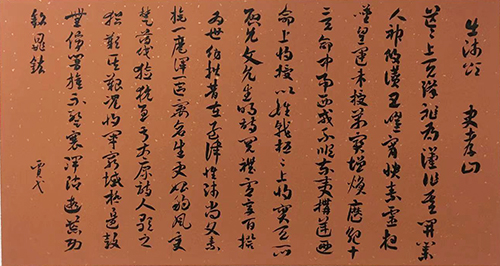 出師頌 史孝山
茫茫上天降祚為漢作基開業
人神攸讚五曜霄映素靈夜
歎皇運来授萬寶增煥歷紀十
二天命中易西戎不順東夷構逆乃
命上將授以雄戟桓桓上將寔天所
啓允文允武明詩閱禮憲章百揆
為世作楷昔在孟津惟師尚父素
旄一麾渾一區宇蒼生更始朔風變
楚薄伐獫狁至于太原詩人歌之
猶歎其艱況我將軍窮域極邊鼓
無停響旗不蹔褰澤霑遐荒功
銘鼎鉉